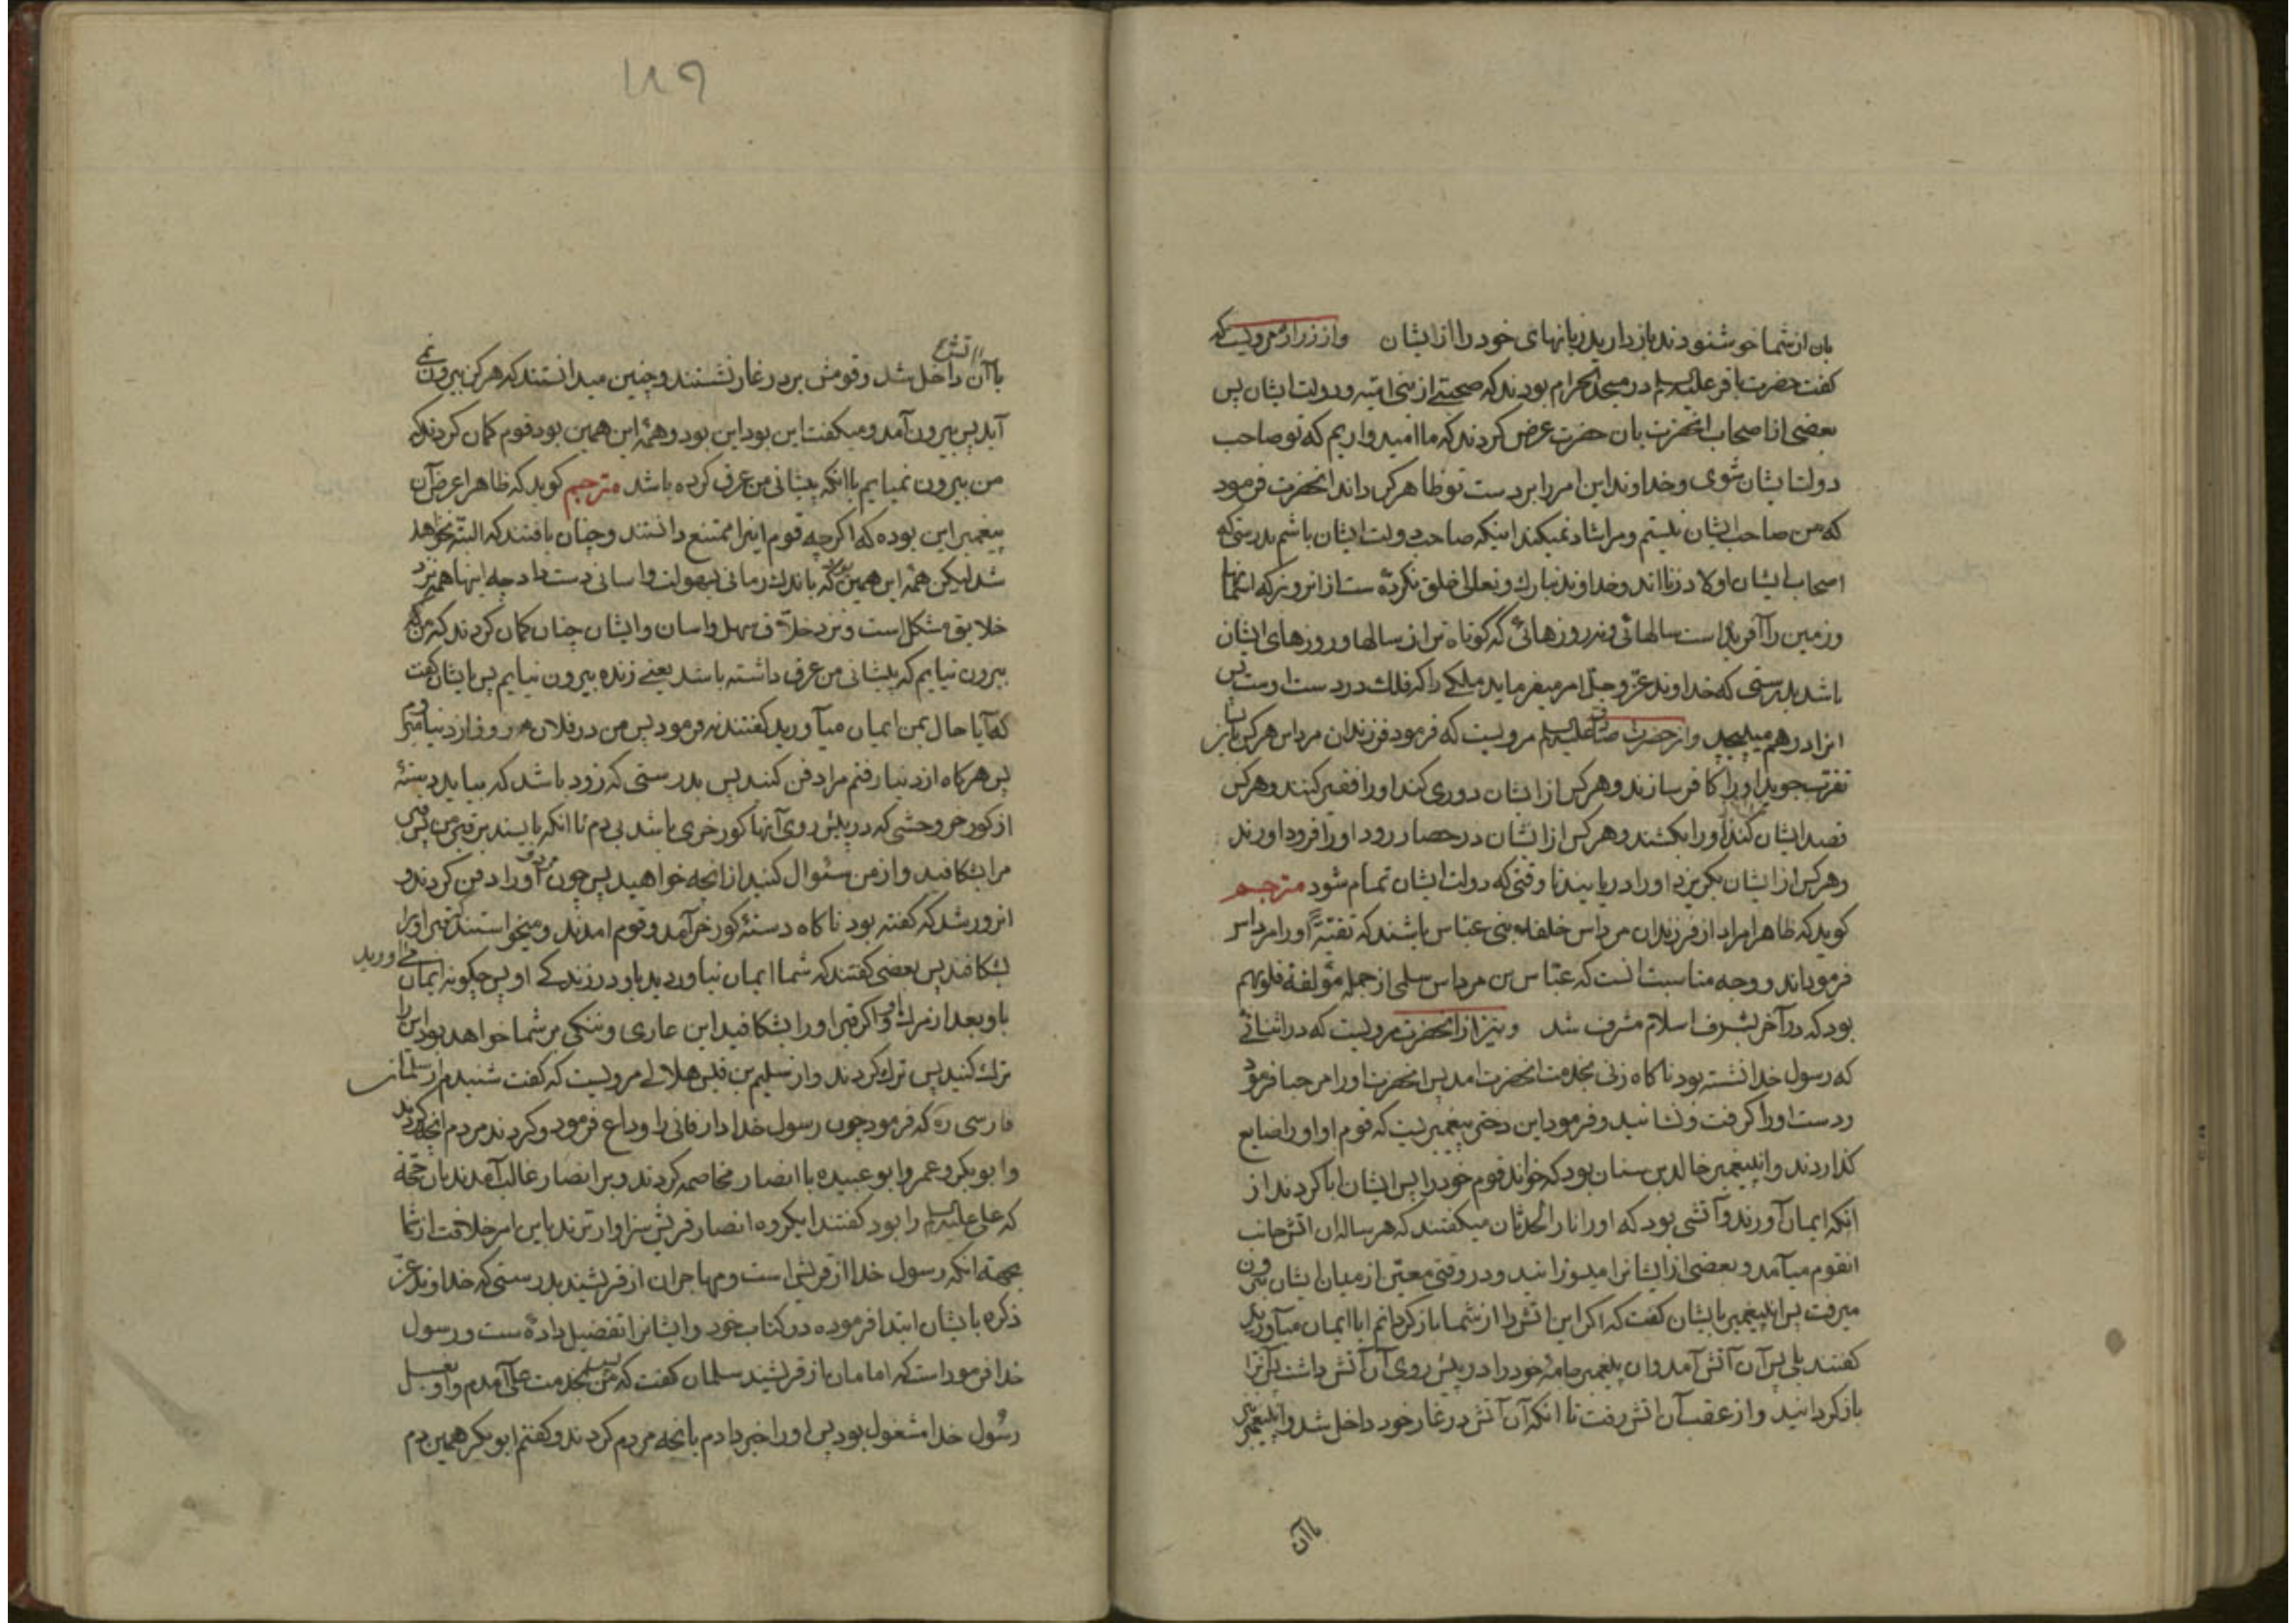 بان از شما خوشنود ند باز دارید زبانهای خود را از ایشان و از زراره مرویست که
گفت حضرت باقر علیه السلم در مسجد الحرام بودند که صحبتی از بنی امیه و دولت ایشان پس
بعضی از اصحاب انحضرت بان حضرت عرض کردند که ما امید واریم که تو صاحب
دولت ایشان شوی و خداوند این امر را بر دست تو ظاهر گرداند انحضرت فرمود
که من صاحب ایشان نیستم و مرا شاد نمیکند اینکه صاحب دولت ایشان باشم بدرستی که
اصحاب ایشان اولاد زنا اند و خداوند تبارک و تعالی خلق نکرده ست از انروزیکه اسمانها
و زمین را آفریده است سالهائی و نه روزهائی که کوتاه تر از سالها و روزهای ایشان
باشد بدرستی که خداوند عز و جل امر میفرماید ملکی را که فلک در دست اوست پس
انرا درهم میپیچد و از حضرت صادق علیه السلم مرویست که فرمود فرزندان مرداس هرکس بایشان
تقرب جوید او را کافر سازند و هرکس از ایشان دوری کند او را فقیر کنند و هرکس
قصد ایشان کند او را بکشند و هرکس از ایشان در حصار رود او را فرود اورند
و هرکس از ایشان بگریزد او را دریابند تا وقتی که دولت ایشان تمام شود مترجم
گوید که ظاهرا مراد از فرزندان مرداس خلفاء بنی عباس باشند که تقیةً او را مرداس
فرموداند و وجه مناسبت انست که عباس بن مرداس سلمی از جمله مؤلفة قلوبهم
بود که در آخر بشرف اسلام مشرف شد و نیز از انحضرت مرویست که در اثنائی
که رسول خدا نشسته بود ناگاه زنی بخدمت انحضرت امد پس انحضرت او را مرحبا فرمود
و دست او را گرفت و نشانید و فرمود این دختر پیغمبریست که قوم او او را ضایع
گذاردند و ان پیغمبر خالد بن سنان بود که خواند قوم خود را پس ایشان ابا کردند از
انکه ایمان آورند و آتشی بود که او را نار الحدثان میگفتند که هر ساله ان اتش جانب
انقوم میآمد و بعضی از ایشانرا میسوزانید و در وقتی معین از میان ایشان بیرون
میرفت پس ان پیغمبر بایشان گفت که اگر این اتش را از شما باز گردانم ایا ایمان میآورید
گفتند بلی پس آن آتش آمد و ان پیغمبر جامهٔ خود را در پیش روی آن آتش داشت پس انرا
باز گردانید و از عقب آن اتش رفت تا انکه آن آتش در غار خود داخل شد و ان پیغمبر نیز
با آن
۱۸۹
با آن اتش داخل شد و قومش بر در غار نشستند و چنین میدانستند که هرگز بیرون نمی
آید پس بیرون آمد و میگفت این بود این بود و همهٔ این همین بود قوم گمان کردند که
من بیرون نمیایم با انکه پیشانی من عرق کرده باشد مترجم گوید که ظاهرا غرض آن
پیغمبر این بوده که اگر چه قوم اینرا ممتنع دانستند و چنان یافتند که البته نخواهد
شد لیکن همهٔ این همین بود که باندک زمانی بسهولت و اسانی دست داد چه اینها همه نزد
خلایق مشکل است و نزد خلاق سهل و اسان و ایشان چنان گمان کردند که من که
بیرون نیایم که پیشانی من عرق داشته باشد یعنی زنده بیرون نیایم پس بایشان گفت
که آیا حال بمن ایمان میآورید گفتند نه فرمود پس من در فلان روز از دنیا میروم
پس هرگاه از دنیا رفتم مرا دفن کنید پس بدرستی که زود باشد که بیاید دستهٔ
از گور خر وحشی که در پیش روی آنها گور خری باشد بی دم تا انکه بایستد بر قبر من پس قبر
مرا بشکافید و از من سئوال کنید از انچه خواهید پس چون مرد او را دفن کردند و
انروز شد که گفته بود ناگاه دستهٔ گور خر آمد و قوم امدند و میخواستند که قبر او را
بشکافند پس بعضی گفتند که شما ایمان نیاوردید باو در زندگی او پس چگونه ایمان می اورید
باو بعد از مرگ او و اگر قبر او را بشکافید این عاری و ننگی بر شما خواهد بود پس او را
ترک کنید پس ترک کردند و از سلیم بن قیس هلالی مرویست که گفت شنیدم از سلمان
فارسی ره که فرمود چون رسول خدا دار فانی را وداع فرمود و کردند مردم انچه کردند
و ابو بکر و عمر و ابو عبیده با انصار مخاصمه کردند و بر انصار غالب آمدند بان حجة
که علی علیه السلم را بود گفتند ایگروه انصار قریش سزاوار ترند باین امر خلافت از شما
بجهة انکه رسول خدا از قریش است و مهاجران از قریشند بدرستی که خداوند عز
ذکره بایشان ابتدا فرموده در کتاب خود و ایشانرا تفضیل داده ست و رسول
خدا فرموداست که امامان از قریشند سلمان گفت که پس من بخدمت علی آمدم و او بغسل
رسول خدا مشغول بود پس او را خبر دادم بانچه مردم کردند و گفتم ابو بکر همین دم